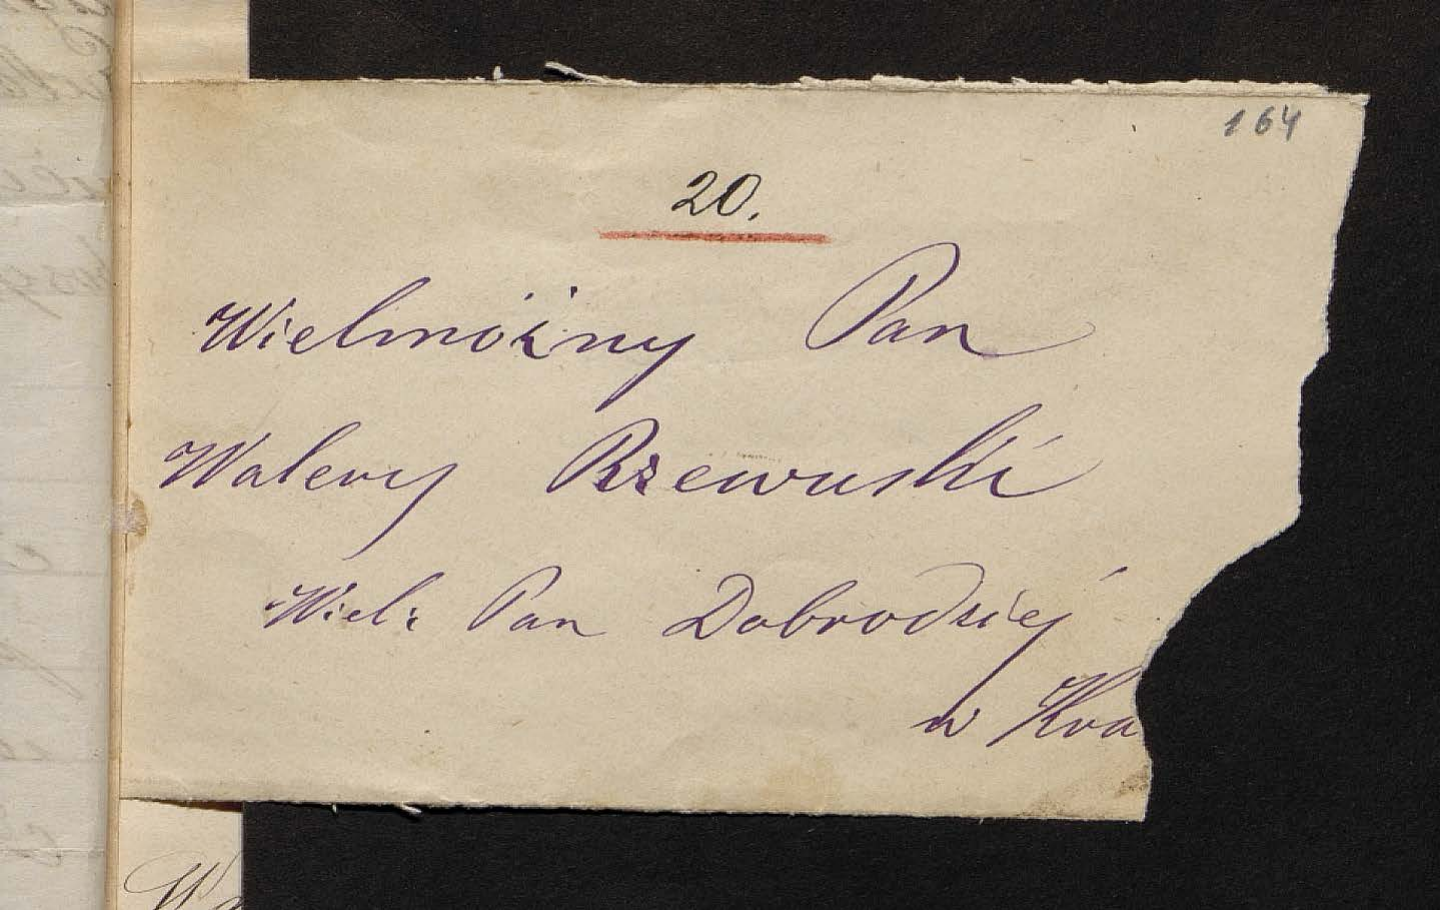 164
20.
Wielmożny Pan
Walery Rzewuski
Wiel: Pan Dobrodziej
w Kra